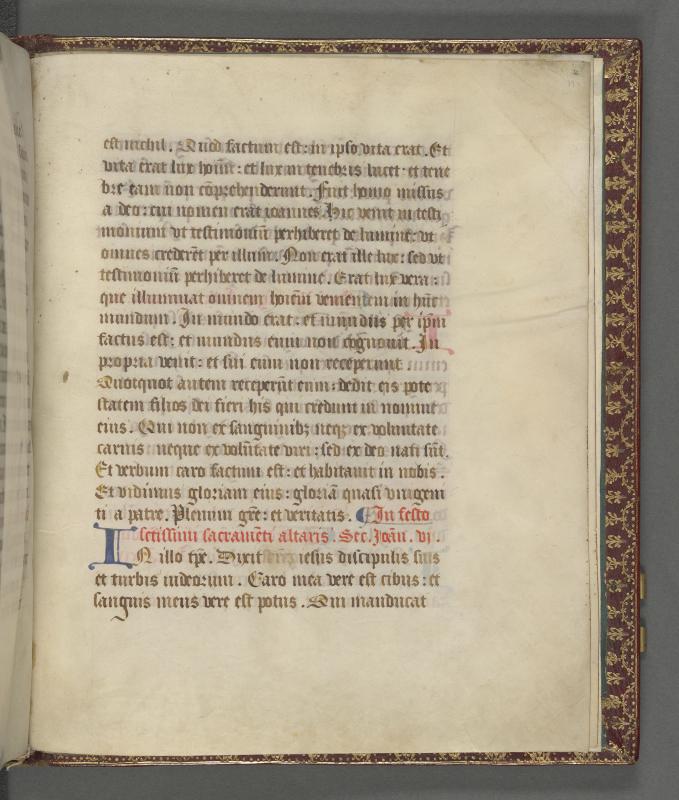 est nichil. Quod factum est: in ipso vita erat. Et
vita erat lux hoım̄: et lux in tenebris lucet: et tene
bre eam non cōprehenderunt. Fuit homo missus
a deo: cui nomen erat ioannes. Hic venit in testi
monium vt testimoniū perhiberet de lumine: vt
omnes crederēt per illum. Non erat ille lux: sed vt
testimoniū perhiberet de lumine. Erat lux vera:
que illuminat omnem hoīem venientem in hūc
mundum. In mundo erat: et mundus per ip̄m
factus est: et mundus eum non cognouit. In
propria venit: et sui eum non receperunt.
Quotquot autem receperūt eum: dedit eis pote
statem filios dei fieri his qui credunt in nomine
eius. Qui non ex sanguinibꝫ neqꝫ ex voluntate
carnis neque ex volūtate viri: sed ex deo nati sūt.
Et verbum caro factum est: et habitauit in nobis.
Et vidimus gloriam eius: gloriā quasi vnigeni
ti a patre. Plenum gr̄e: et veritatis. ¶ In festo
sctissimi sacramēti altaris. Sec. Joān. vj.
IN illo tp̄e. Dixit iesus discipulis suis
et turbis iudeorum. Caro mea vere est cibus: et
sanguis meus vere est potus. Qui manducat